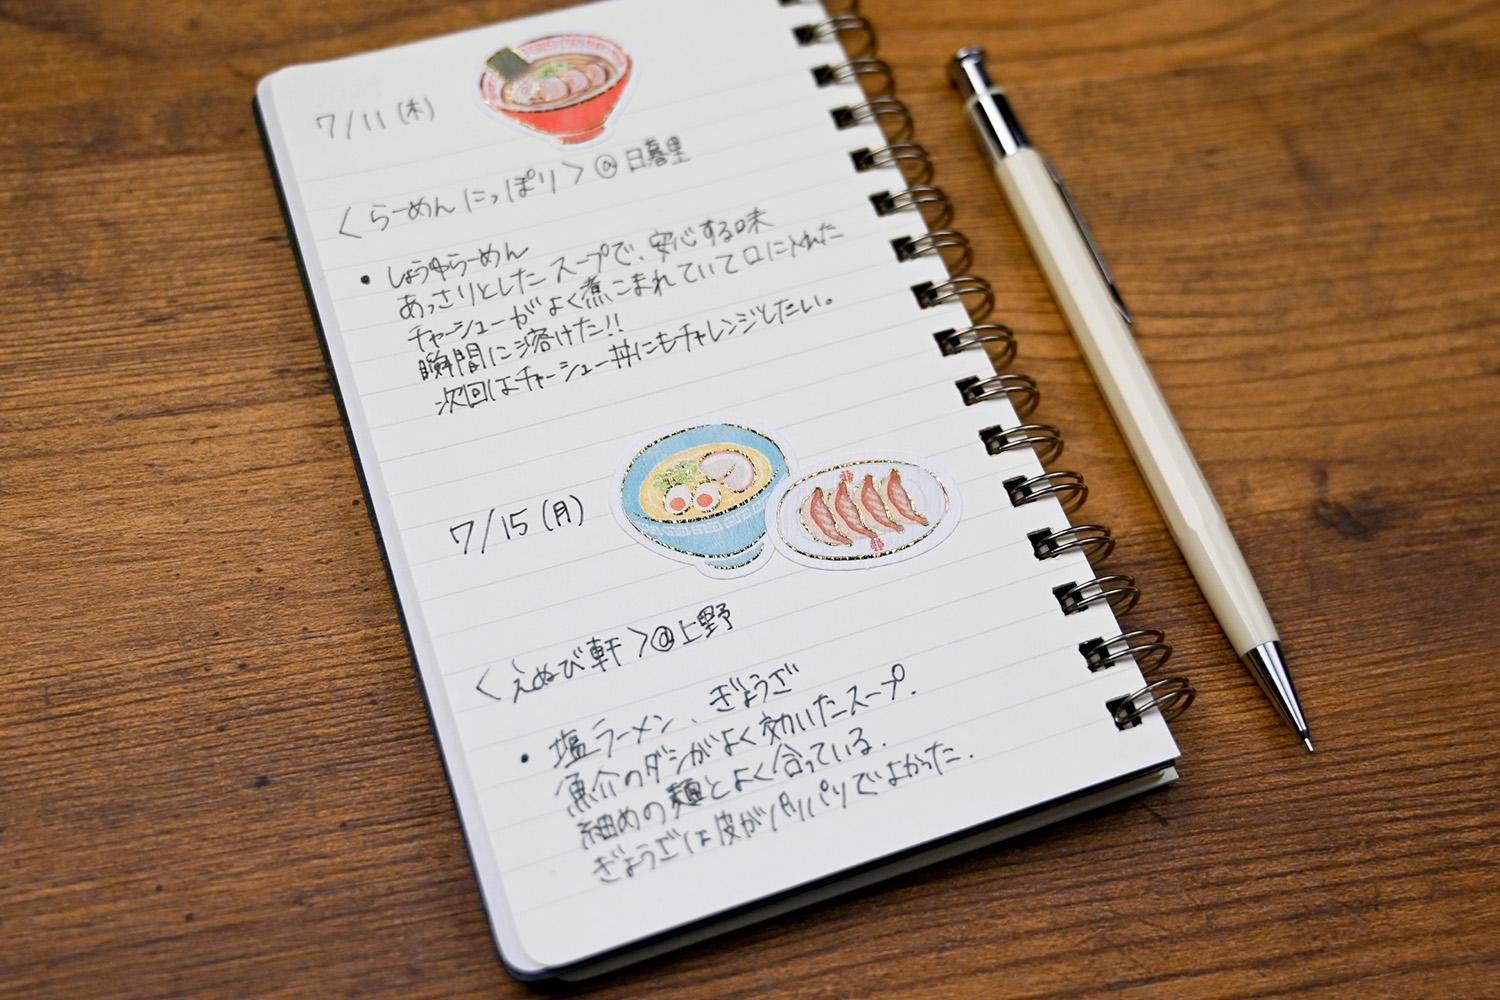 7/11(木)
〈らーめんにっぽり〉@日暮里
• しょうゆらーめん
あっさりとしたスープで、安心する味
チャーシューがよく煮こまれていて口に入れた
瞬間に溶けた!!
次回はチャーシュー丼にもチャレンジしたい。
7/15(月)
〈えぬび軒〉@上野
• 塩ラーメン、ぎょうざ
魚介のダシがよく効いたスープ.
細めの麺とよく合っている.
ぎょうざは皮がパリパリでよかった.